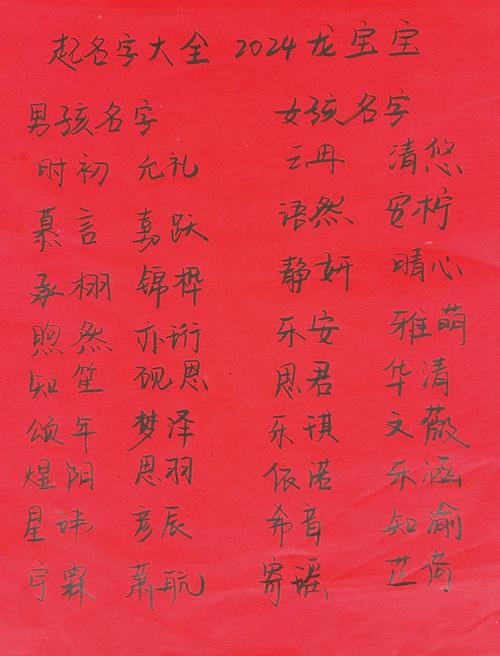 起名字大全 2024龙宝宝
男孩名字 女孩名字
时初 允礼 云冉 清悠
慕言 嘉跃 语然 安柠
承栩 锦桦 静妍 晴心
煦然 亦珩 乐安 雅萌
知笙 砚恩 思君 华清
颂年 梦泽 乐琪 文薇
煜阳 思羽 依诺 乐涵
星讳 彦辰 希音 知渝
宁霖 萧航 寄谣 芷倚